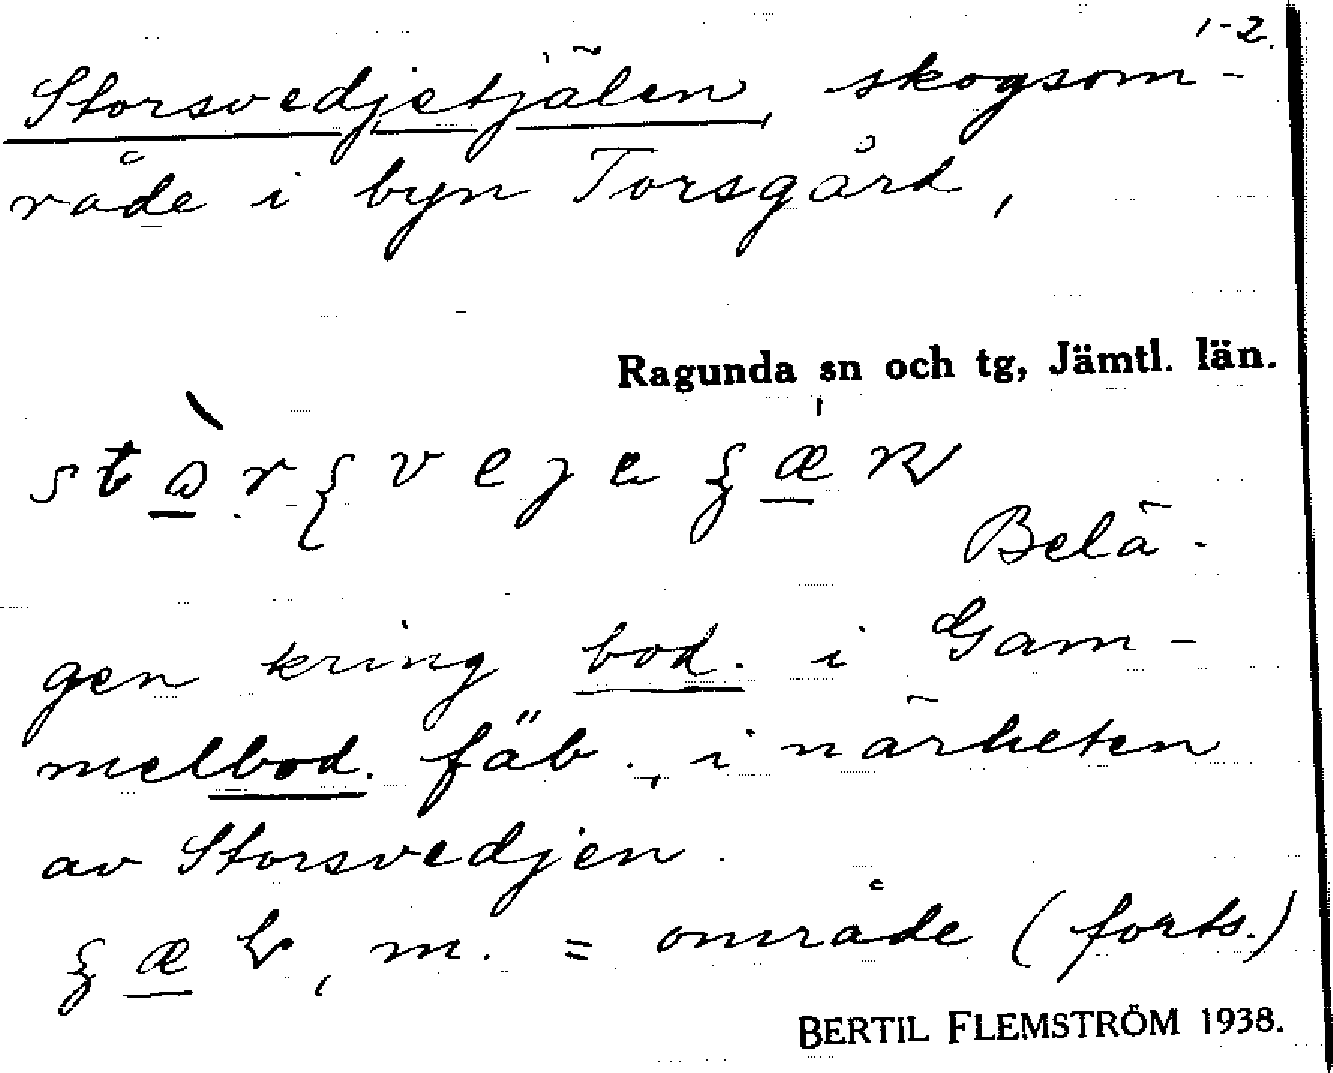 1-2.
Storsvedjetjälen, skogsom-
råde i byn Torsgård,
Ragunda sn och tg, Jämtl. län.
Belä-
gen kring bod. i Gam-
melbod. fäb., i närheten
av Storsvedjen.
m. = område (forts.)
BERTIL FLEMSTRÖM 1938.